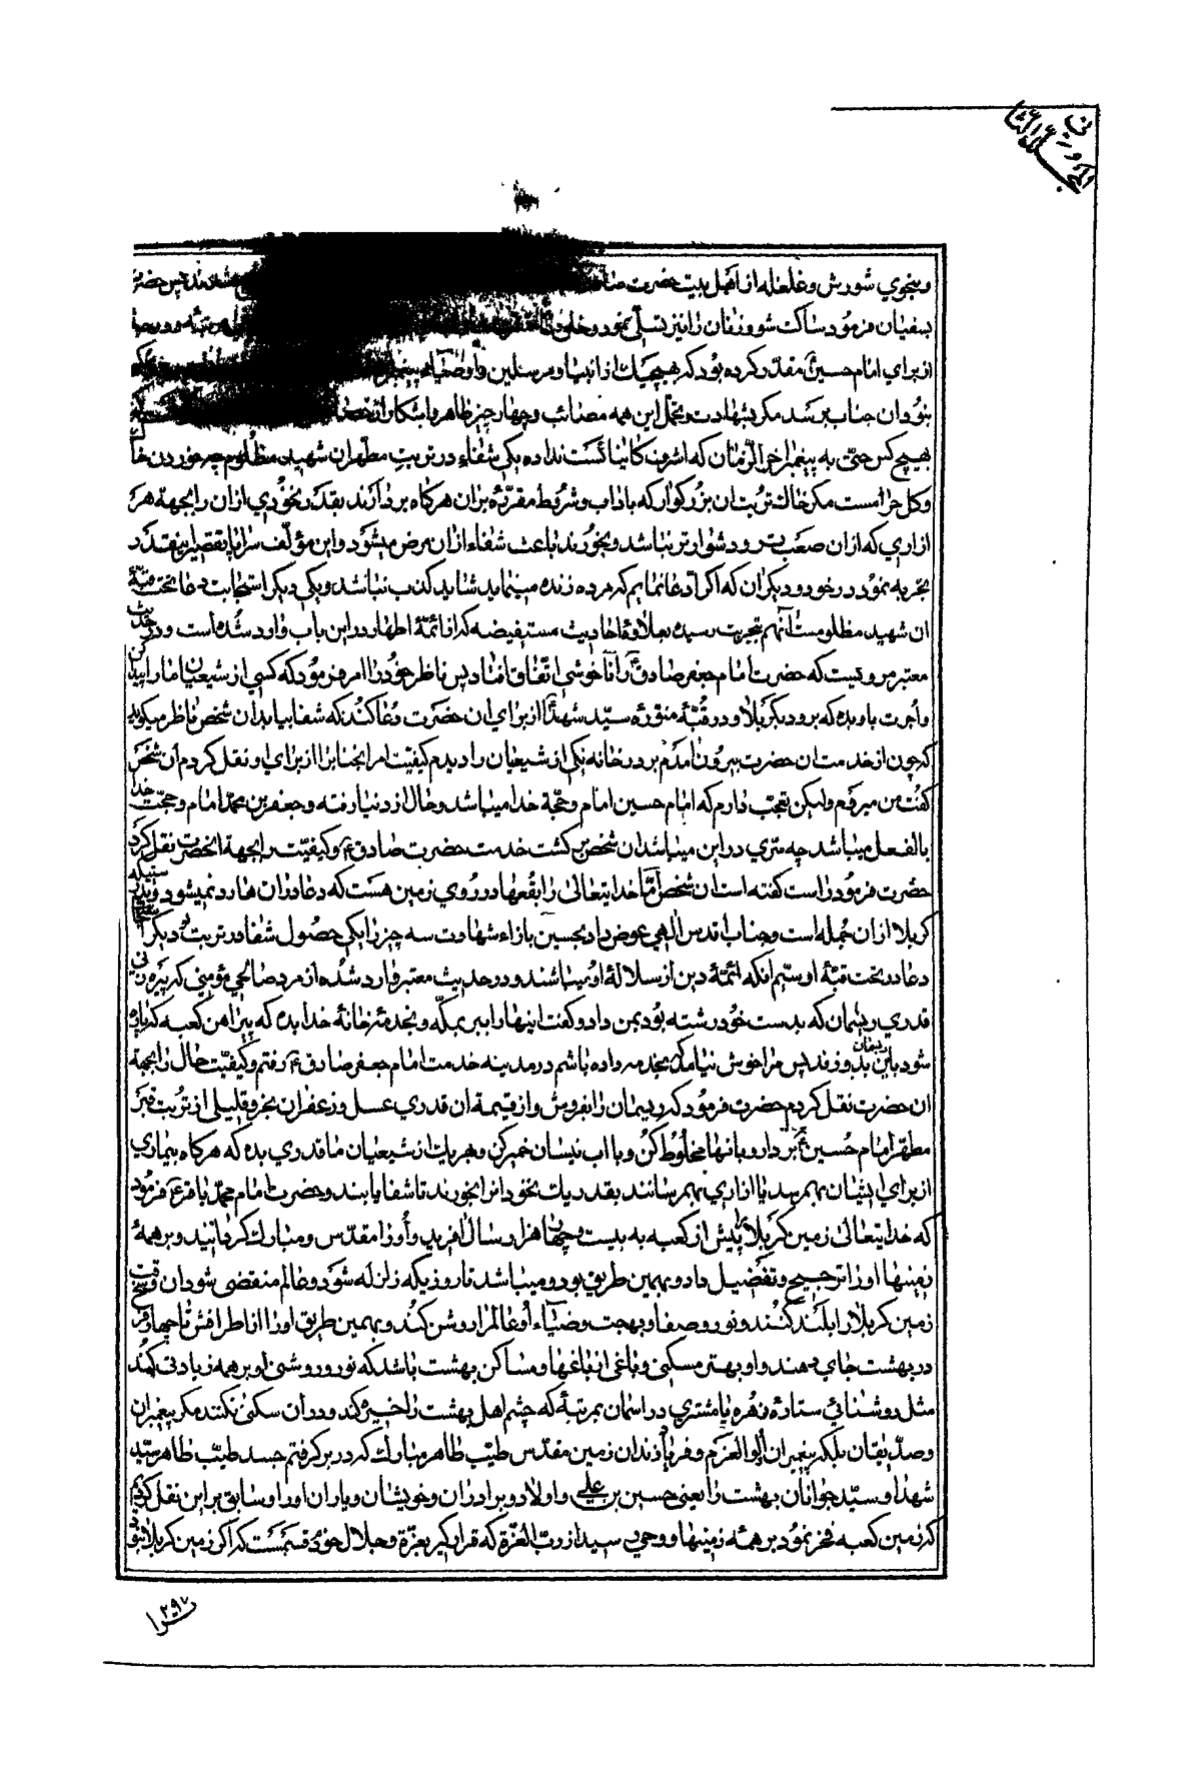 المجلد الثانی
وبنحوي شورش و غلغله از اهل بیت حضرت پس حضرت
بسفیان فرمود ساکت شو و زنان را نیز تسلّی نمود و مرتبه و درجه
از برای امام حسین ع مقدّر کرده بود که هیچیک از انبیا و مرسلین و اوصیاء
نتوان جناب برسد مگر بشهادت و تحمل این همه مصائب و چهار چیز ظاهر
هیچ کس حتی به پیغمبر اخر الزّمان که اشرف کاینات است نداده یکی شفاء در تربت مطهّر ان شهید مظلوم چه خوردن خاک
و کل حرامست مگر خاک تربت ان بزرگوار که باداب و شروط مقرّره بران هرگاه بردارند بقدر نخودی ازان را بجهة هر
ازاری که ازان صعب تر و دشوارتر نباشد و بخورند باعث شفاء ازان مرض میشود و این مؤلّف سراپا تقصیر اینقدر
تجربه نمود در خود و دیگران که اگر ادّعا نمایم که مرده زنده مینماید شاید کذب نباشد و یکی دیگر استجابت دعا تحت قبّه
ان شهید مظلومست آنهم بتجربت رسیده بعلاوهٔ احادیث مستفیضه که از ائمّهٔ اطهار در این باب وارد شده است و در حدیث
معتبر مرویست که حضرت امام جعفر صادق ع را ناخوشی اتّفاق افتاد پس ناظر خود را امر فرمود که کسی از شیعیان ما را پیدا کن
و اجرت باو بده که برود بکربلا و در قبّهٔ منوّره سیّد شهدا از برای ان حضرت دعا کند که شفا بیابد ان شخص ناظر میگوید
که چون از خدمت ان حضرت بیرون امدم بر در خانه یکی از شیعیان را دیدم کیفیّت امر انجناب را از برای او نقل کردم ان شخص
گفت من میروم ولیکن تعجّب دارم که امام حسین امام و حجّة خدا میباشد و حال از دنیا رفته و جعفر بن محمد امام و حجّت خدا
بالفعل میباشد چه سرّی در این میباشد ان شخص برگشت خدمت حضرت صادق ع و کیفیّت را بجهة انحضرت نقل کرد
حضرت فرمود راست گفته است ان شخص امّا خدا یتعالی را بقعها در روی زمین هست که دعا در ان ها رد نمیشود و زمین
کربلا از ان جمله است و جناب اقدس الهی عوض داد بحسین بازاء شهادت سه چیز را یکی حصول شفا در تربت او دیگر
دعا در تحت قبّهٔ او سیّم انکه ائمّهٔ دین از سلالهٔ او میباشند و در حدیث معتبر وارد شده از مرد صالحی مؤمنی که پیره زنی
قدری ریسمان که بدست خود رشته بود بمن داد و گفت اینها را ببر بمکّه و بخدمهٔ خانهٔ خدا بده که پیراهن کعبه که پاره
شود باین ریسمان بدوزند پس مرا خوش نیامد که بخدمه داده باشم در مدینه خدمت امام جعفر صادق ع رفتم و کیفیّت حال را بجهة
ان حضرت نقل کردم حضرت فرمود که ریسمان را بفروش و از قیمة ان قدری عسل و زعفران بخر و قلیلی از تربت قبر
مطهّر امام حسین ع بردار و بانها مخلوط کن و با اب نیسان خمیر کن و بهر یک از شیعیان ما قدری بده که هرگاه بیماری
از برای ایشان بهم رسد یا ازاری بهم رسانند بقدر یک نخود انرا بخورند تا شفا یابند و حضرت امام محمّد باقر ع فرمود
که خدا یتعالی زمین کربلا را پیش از کعبه به بیست و چهار هزار سال افرید و او را مقدّس و مبارک گردانید و بر همهٔ
زمینها او را ترجیح و تفضیل داد و بهمین طریق بود و میباشد تا روزیکه زلزله شود و عالم منقضی شود ان وقت
زمین کربلا را بلند کنند و نور و صفا و بهجت و ضیاء او عالم را روشن کند و بهمین طریق او را با اطرافش
در بهشت جای دهند و او بهترین مسکنی و باغی از باغها و مساکن بهشت باشد که نور و روشنی او بر همه زیادتی کند
مثل روشنائی ستارهٔ زهره یا مشتری در اسمان بمرتبهٔ که چشم اهل بهشت را خیره کند و در ان سکنی نکنند مگر پیغمبران
و صدّیقان بلکه پیغمبران اولوالعزم و فریاد زند ان زمین مقدّس طیّب طاهر مبارک که در بر گرفتم جسد طیّب طاهر سیّد
شهدا و سیّد جوانان بهشت را یعنی حسین بن علی و اولاد و برادران و خویشان و یاران او را و سابق بر این نقل کردیم
که زمین کعبه فخر نمود بر همه زمینها و وحی رسید از ربّ العزّة که قرار گیر بعزّة و جلال خودم قسمست که اگر زمین کربلا
۲۹۷